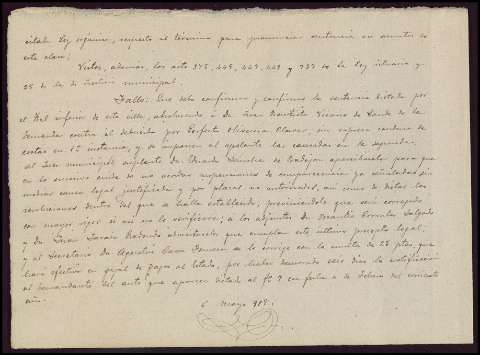 citada Ley orgánica, respecto al término para pronunciar sentencia en asuntos de
esta clase;
Vistos, además, los arts 372, 445, 449 y 733 de la Ley rituaria y
25 de la de Justicia municipal.
Fallo: Que debo confirmar y confirmo la sentencia dictada por
el Tribunal inferior de esta villa, absolviendo a Dn Juan Bautista de la
demanda contra él deducida por Perfecto Oliveira, sin expresa condena de
costas en 1ª instancia, y se imponen al apelante las causadas en la segunda.
Al Juez municipal suplente Dn Eduardo se conmina para que
en lo sucesivo cuide de no acordar suspensiones de comparecencia ya señalada sin
mediar causa legal justificada y por plazos no autorizados, así como de dictar las
resoluciones dentro del que se halla establecido, previniéndole que será corregido
con mayor rigor si así no lo verificase; a los adjuntos Dn Salgado
y Dn Juan Redondo que cumplan este último precepto legal;
y al Secretario Dn se le corrige con la multa de 25 ptas, que
hará efectiva en papel de pagos al Estado, por haber demorado seis días la notificación
al demandante del auto que aparece dictado al fº 9 con fecha de Febrero del corriente
año.
6 mayo 915.